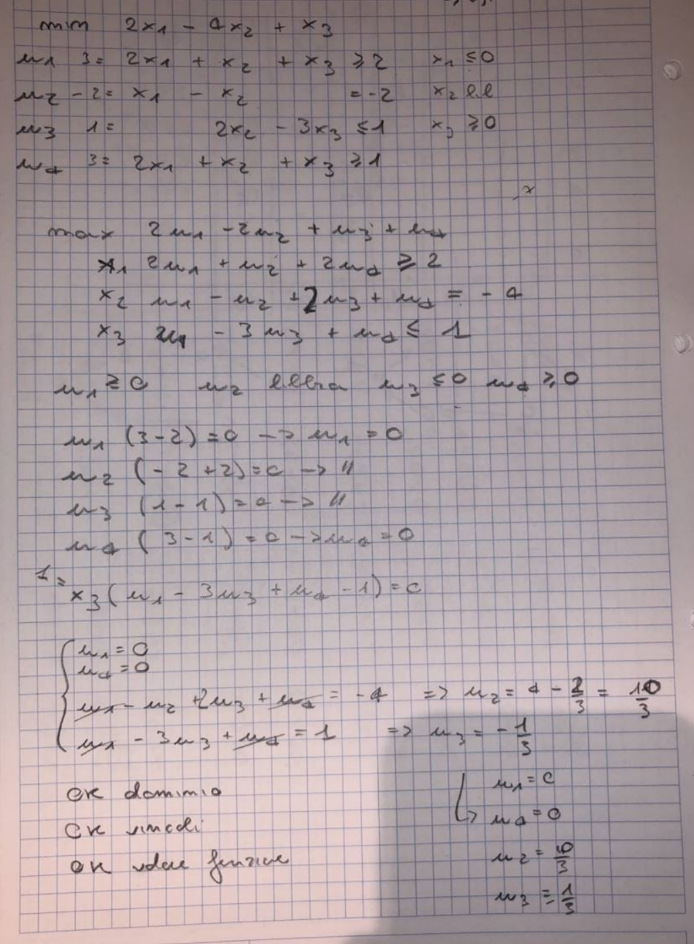 min 2x1 - 4x2 + x3
u1 3 = 2x1 + x2 + x3 ≥ 2 x1 ≤ 0
u2 -2 = x1 - x2 = -2 x2 ll
u3 1 = 2x2 - 3x3 ≤ 1 x3 ≥ 0
u4 3 = 2x1 + x2 + x3 ≥ 1
max 2u1 - 2u2 + u3 + u4
x1 2u1 + u2 + 2u4 ≥ 2
x2 u1 - u2 + 2u3 + u4 = -4
x3 u1 - 3u3 + u4 ≤ 1
u1 ≥ 0 u2 libera u3 ≤ 0 u4 ≥ 0
u1 (3-2) = 0 -> u1 = 0
u2 (-2+2) = 0 -> //
u3 (1-1) = 0 -> //
u4 (3-1) = 0 -> u4 = 0
1 =
x3 (u1 - 3u3 + u4 - 1) = 0
u1 = 0
u4 = 0
u1 - u2 + 2u3 + u4 = -4 => u2 = 4 - 2/3 = 10/3
u1 - 3u3 + u4 = 1 => u3 = -1/3
ok dominio
ok vincoli
ok valore funzione
u1 = 0
u4 = 0
u2 = 10/3
u3 = 1/3